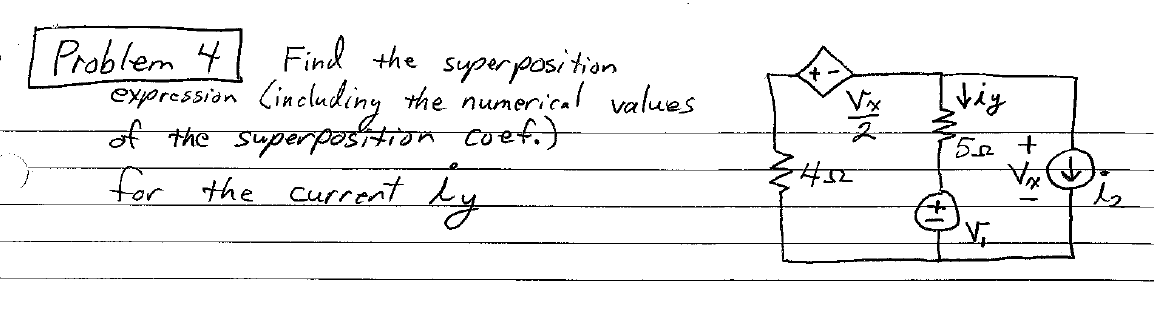 Problem 4 Find the superposition
expression (including the numerical values
of the superposition coef.)
for the current iy
+ -
Vx/2
↓iy
5Ω
+
Vx
-
i2
4Ω
+
-
V1